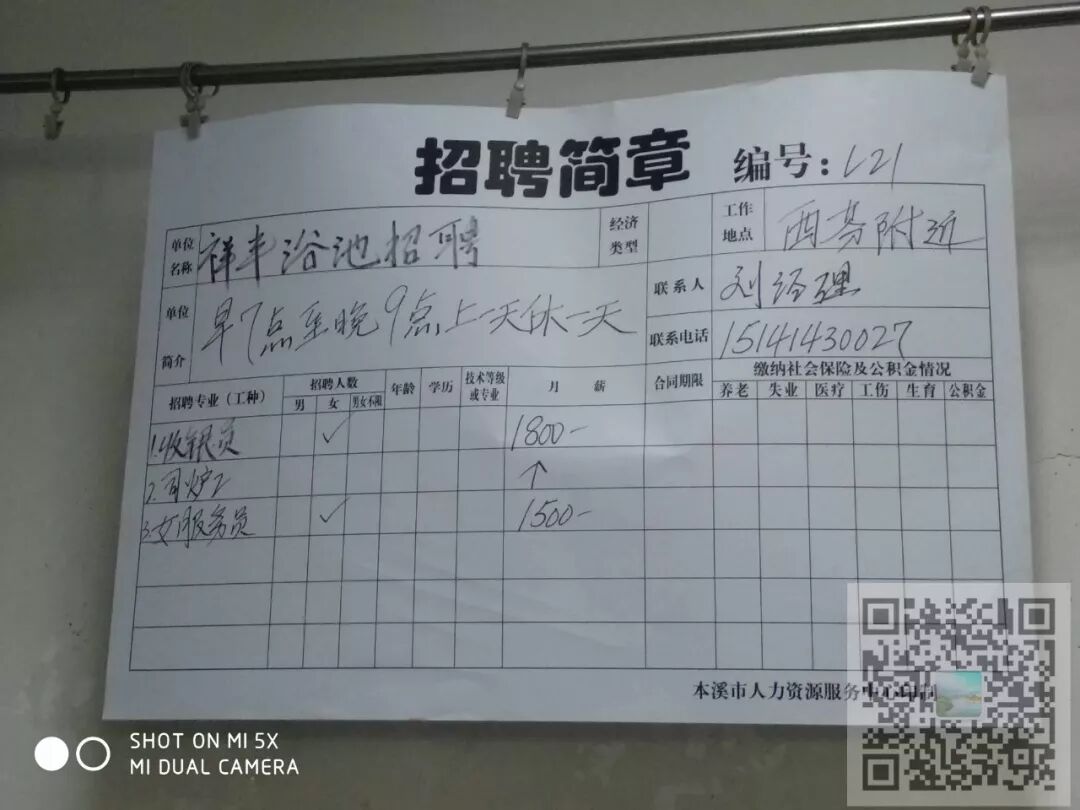 招聘简章 编号：L21
单位名称 祥丰浴池招聘 经济类型 工作地点 西芬附近
单位简介 早7点至晚9点上一天休一天 联系人 刘经理
联系电话 15141430027
招聘专业（工种） 招聘人数 年龄 学历 技术等级或专业 月 薪 合同期限 缴纳社会保险及公积金情况
男 女 男女不限 养老 失业 医疗 工伤 生育 公积金
1.收银员 ✓ 1800-
2.司炉工 ↑
3.女服务员 ✓ 1500-
本溪市人力资源服务中心印制
SHOT ON MI 5X
MI DUAL CAMERA